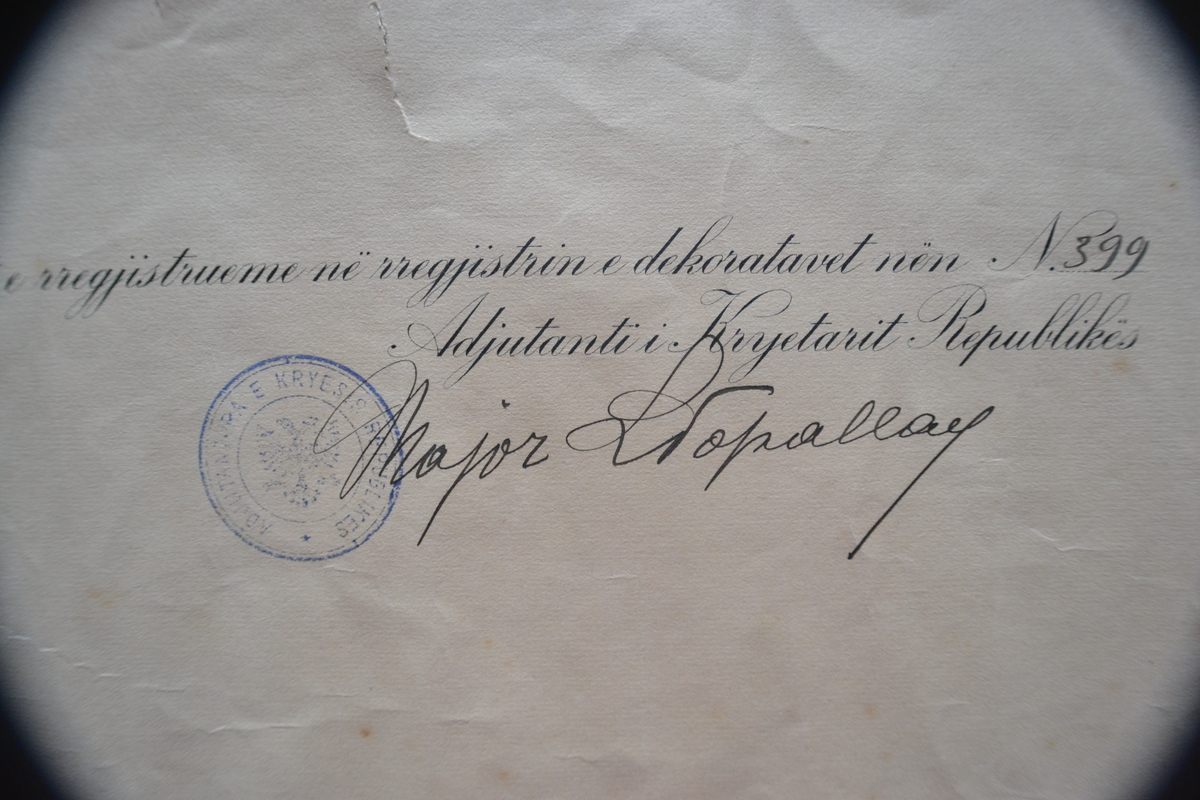 e rregjistrueme në rregjistrin e dekoratavet nën N. 399
Adjutanti i Kryetarit Republikës
Major
E KRYESIS REPUBLIKES